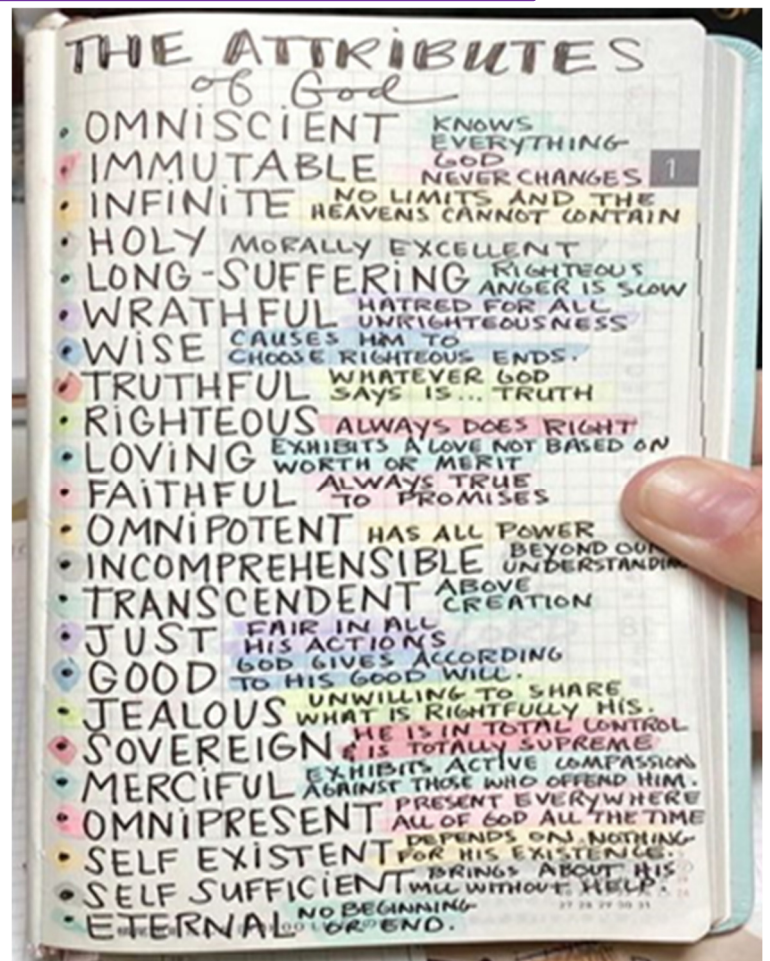 THE ATTRIBUTES
of God
OMNISCIENT KNOWS EVERYTHING
IMMUTABLE GOD NEVER CHANGES
1
INFINITE NO LIMITS AND THE HEAVENS CANNOT CONTAIN
HOLY MORALLY EXCELLENT
LONG-SUFFERING RIGHTEOUS ANGER IS SLOW
WRATHFUL HATRED FOR ALL UNRIGHTEOUSNESS
WISE CAUSES HIM TO CHOOSE RIGHTEOUS ENDS.
TRUTHFUL WHATEVER GOD SAYS IS... TRUTH
RIGHTEOUS ALWAYS DOES RIGHT
LOVING EXHIBITS A LOVE NOT BASED ON WORTH OR MERIT
FAITHFUL ALWAYS TRUE TO PROMISES
OMNIPOTENT HAS ALL POWER
INCOMPREHENSIBLE BEYOND OUR UNDERSTANDIN
TRANSCENDENT ABOVE CREATION
JUST FAIR IN ALL HIS ACTIONS
GOOD GOD GIVES ACCORDING TO HIS GOOD WILL.
JEALOUS UNWILLING TO SHARE WHAT IS RIGHTFULLY HIS.
SOVEREIGN HE IS IN TOTAL CONTROL & IS TOTALLY SUPREME
MERCIFUL EXHIBITS ACTIVE COMPASSION AGAINST THOSE WHO OFFEND HIM.
OMNIPRESENT PRESENT EVERYWHERE ALL OF GOD ALL THE TIME
SELF EXISTENT DEPENDS ON NOTHING FOR HIS EXISTENCE.
SELF SUFFICIENT BRINGS ABOUT HIS WILL WITHOUT HELP.
27 28 29 30 31
ETERNAL NO BEGINNING OR END.